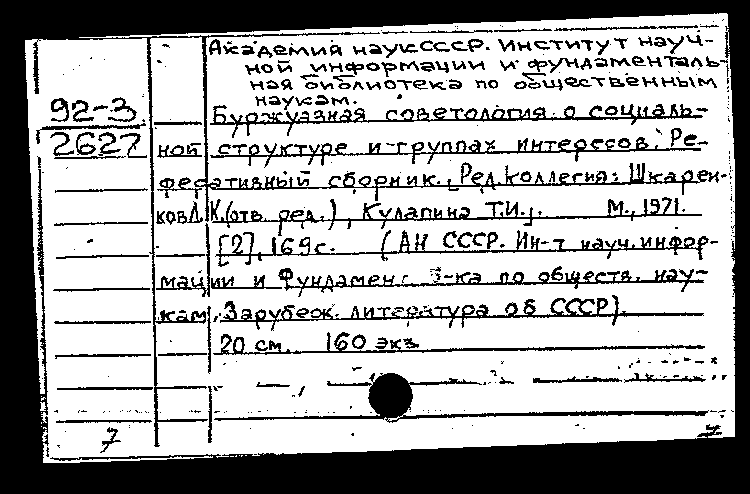 Академия наук СССР. Институт науч-
ной информации и фундаменталь-
ная библиотека по общественным
наукам.
92-3
2627
Буржуазная советология о социаль-
ной структуре и группах интересов. Ре-
феративный сборник. [Ред. коллегия: Шкарен-
ков Л.К. (отв. ред.), Кулапина Т.И.]. М., 1971.
[2], 169 с. (АН СССР. Ин-т науч. инфор-
мации и Фундамен. Б-ка по обществ. нау-
кам, Зарубеж. литература об СССР).
20 см. 160 экз
7
7